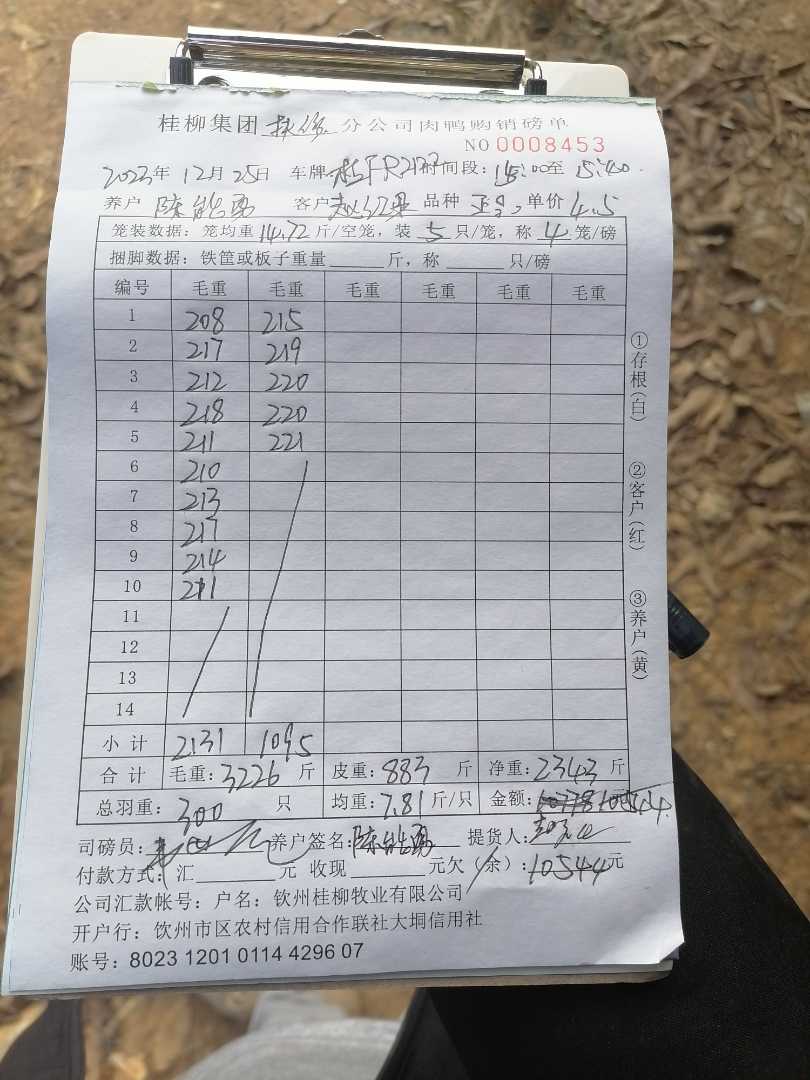 桂柳集团 分公司肉鸭购销磅单
NO 0008453
2023年 12月 25日 车牌 时间段: 15:00至 15:40
养户 陈能勇 客户 品种 单价 4.5
笼装数据: 笼均重 14.72 斤/空笼, 装 5 只/笼, 称 4 笼/磅
捆脚数据: 铁筐或板子重量 斤, 称 只/磅
编号 毛重 毛重 毛重 毛重 毛重 毛重
1 208 215
2 217 219
3 212 220
4 218 220
5 211 221
6 210
7 213
8 217
9 214
10 211
11
12
13
14
小计 2131 1095
合计 毛重: 3226 斤 皮重: 883 斤 净重: 2343 斤
总羽重: 300 只 均重: 7.81 斤/只 金额: 10544.
司磅员: 养户签名: 陈能勇 提货人:
付款方式: 汇 元 收现 元欠(余): 10544元
公司汇款帐号: 户名: 钦州桂柳牧业有限公司
开户行: 钦州市区农村信用合作联社大垌信用社
账号: 8023 1201 0114 4296 07
①存根(白)
②客户(红)
③养户(黄)